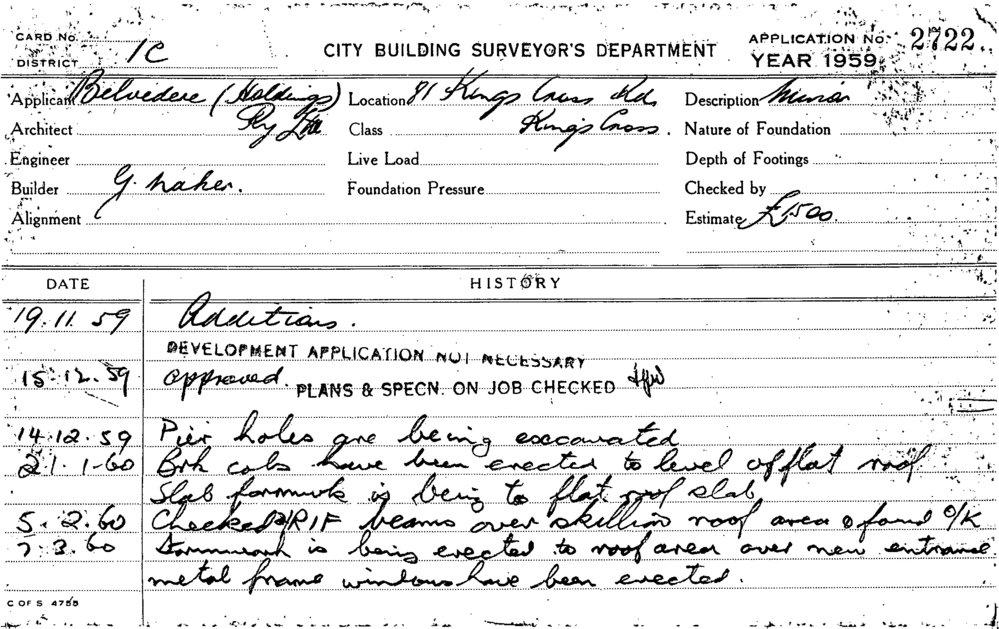 CARD No.
DISTRICT 1C
CITY BUILDING SURVEYOR'S DEPARTMENT
APPLICATION No. 2722
YEAR 1959
Applicant Belvedere (Holdings) Pty Ltd
Location 81 Kings Cross Rd. Kings Cross.
Description Minor
Architect
Class
Nature of Foundation
Engineer
Live Load
Depth of Footings
Builder G. Maher.
Foundation Pressure
Checked by
Alignment
Estimate £1500
DATE HISTORY
19.11.59 Additions.
DEVELOPMENT APPLICATION NOT NECESSARY
15.12.59 approved. PLANS & SPECN. ON JOB CHECKED
14.12.59 Pier holes are being excavated
21.1.60 Brk cols have been erected to level of flat roof
Slab formwk is being to flat roof slab
5.2.60 Checked R/F beams over skillion roof area & found O/K
7.3.60 Formwork is being erected to roof area over new entrance
metal frame windows have been erected.
C OF S 4755